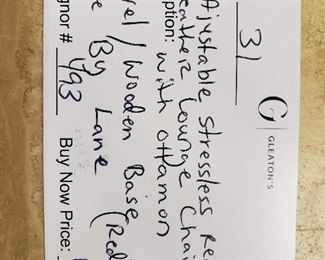 G
GLEATON'S
31
Ajustable Stressless Re
eather Lounge Chai
ption: with ottamon
vel/Wooden Base (Red
e By Lane
gnor # 793 Buy Now Price: